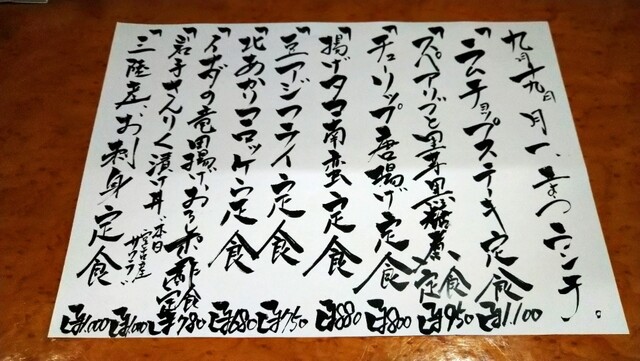 九月十九日 月一、まつランチ。
「ラムチョップステーキ定食 1,100
「スペアリブと里芋黒糖煮、定食 950
「チューリップ唐揚げ定食 800
「揚げタコ南蛮定食 880
「豆アジフライ定食 750
「北あかりコロッケ定食 680
「イナダの竜田揚げ、おろポン酢定食 780
「岩手さんりく漬け丼、本日
宮古産
「三陸産、お刺身定食 1,000